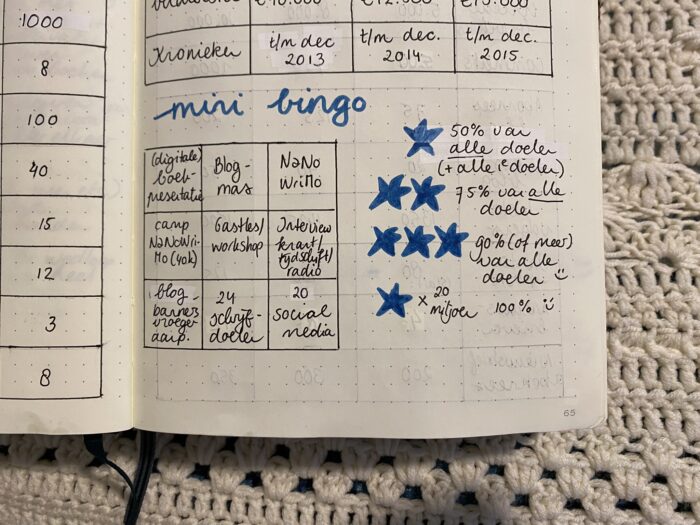 1000
8
100
40
15
12
3
8
Kronieken
t/m dec
2013
t/m dec.
2014
t/m dec.
2015
mini bingo
(digitale)
boek-
presentatie
Blog-
mas
NaNo
WriMo
camp
NaNoWri-
Mo (40k)
Gastles/
workshop
Interview
krant/
tijdschrift/
radio
blog-
banners
vroeger
aanp.
24
schrijf-
doelen
20
social
media
50% van
alle doelen
(+ alle 1e doelen)
75% van alle
doelen
90% (of meer)
van alle
doelen
x 20
miljoen 100%
65